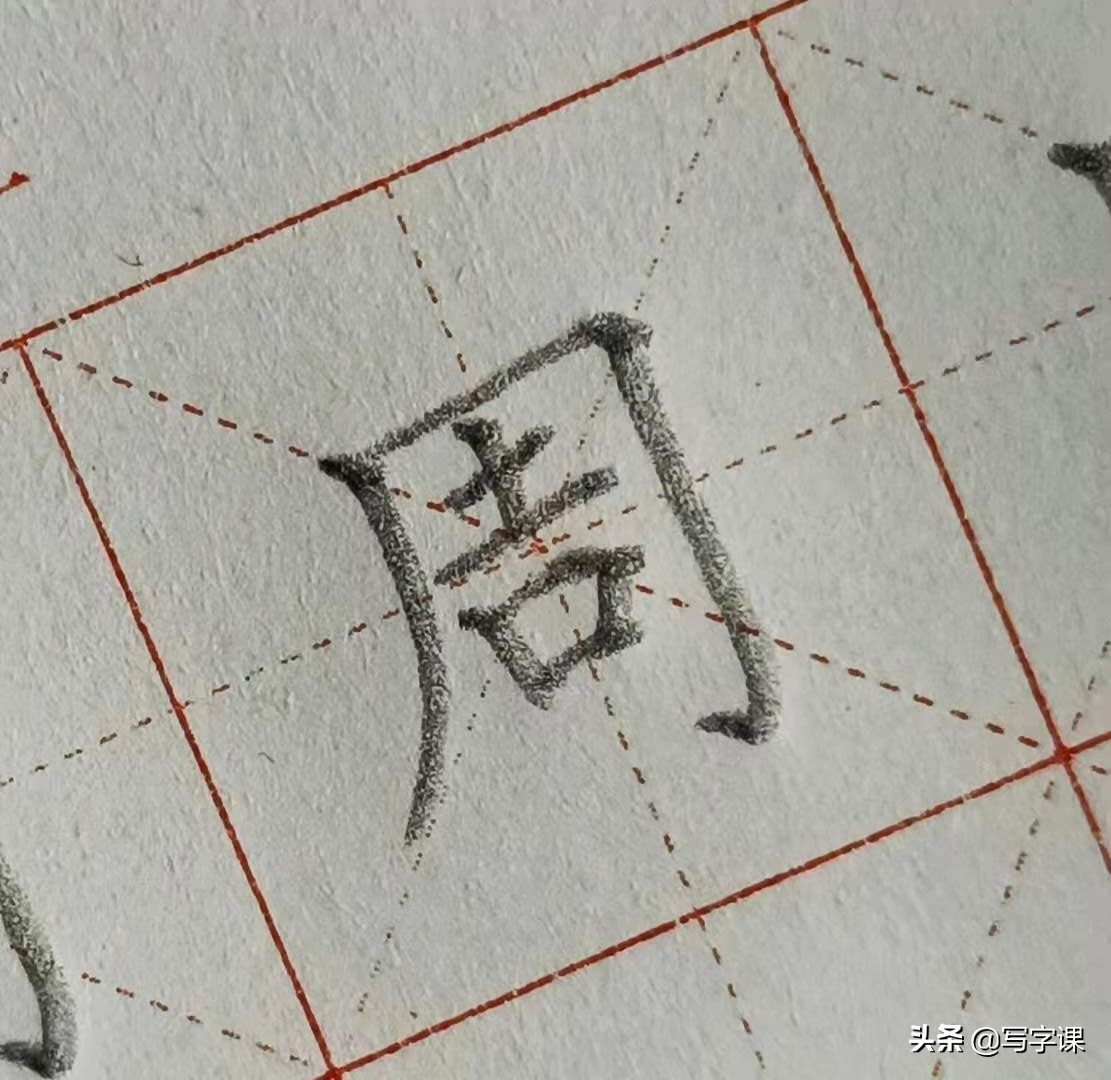 周
头条 @写字课